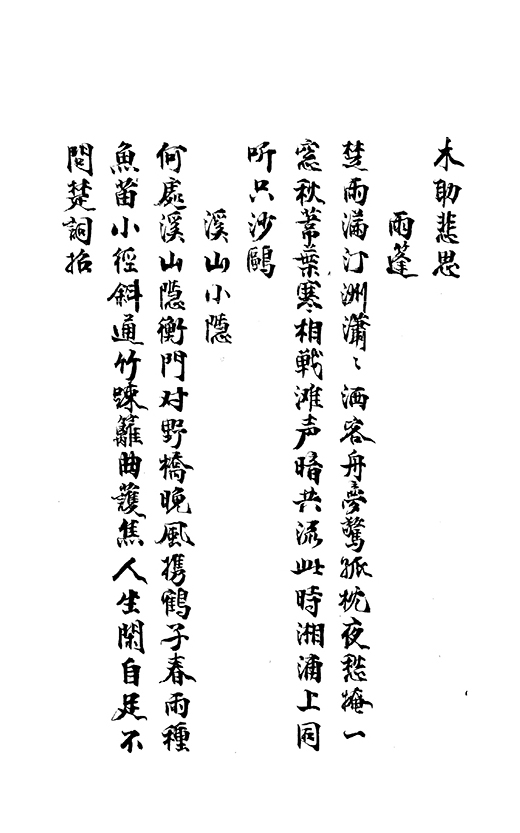 木助悲思
雨蓬
楚雨满汀洲瀟ヽ洒客舟夢驚孤枕夜愁掩一
窓秋葦葉寒相戦滩声暗共流此時湘浦上同
听只沙鷗
溪山小隠
何處溪山隠衡門对野橋晚風携鶴子春雨種
魚苗小徑斜通竹踈籬曲護焦人生閑自足不
問楚詞招